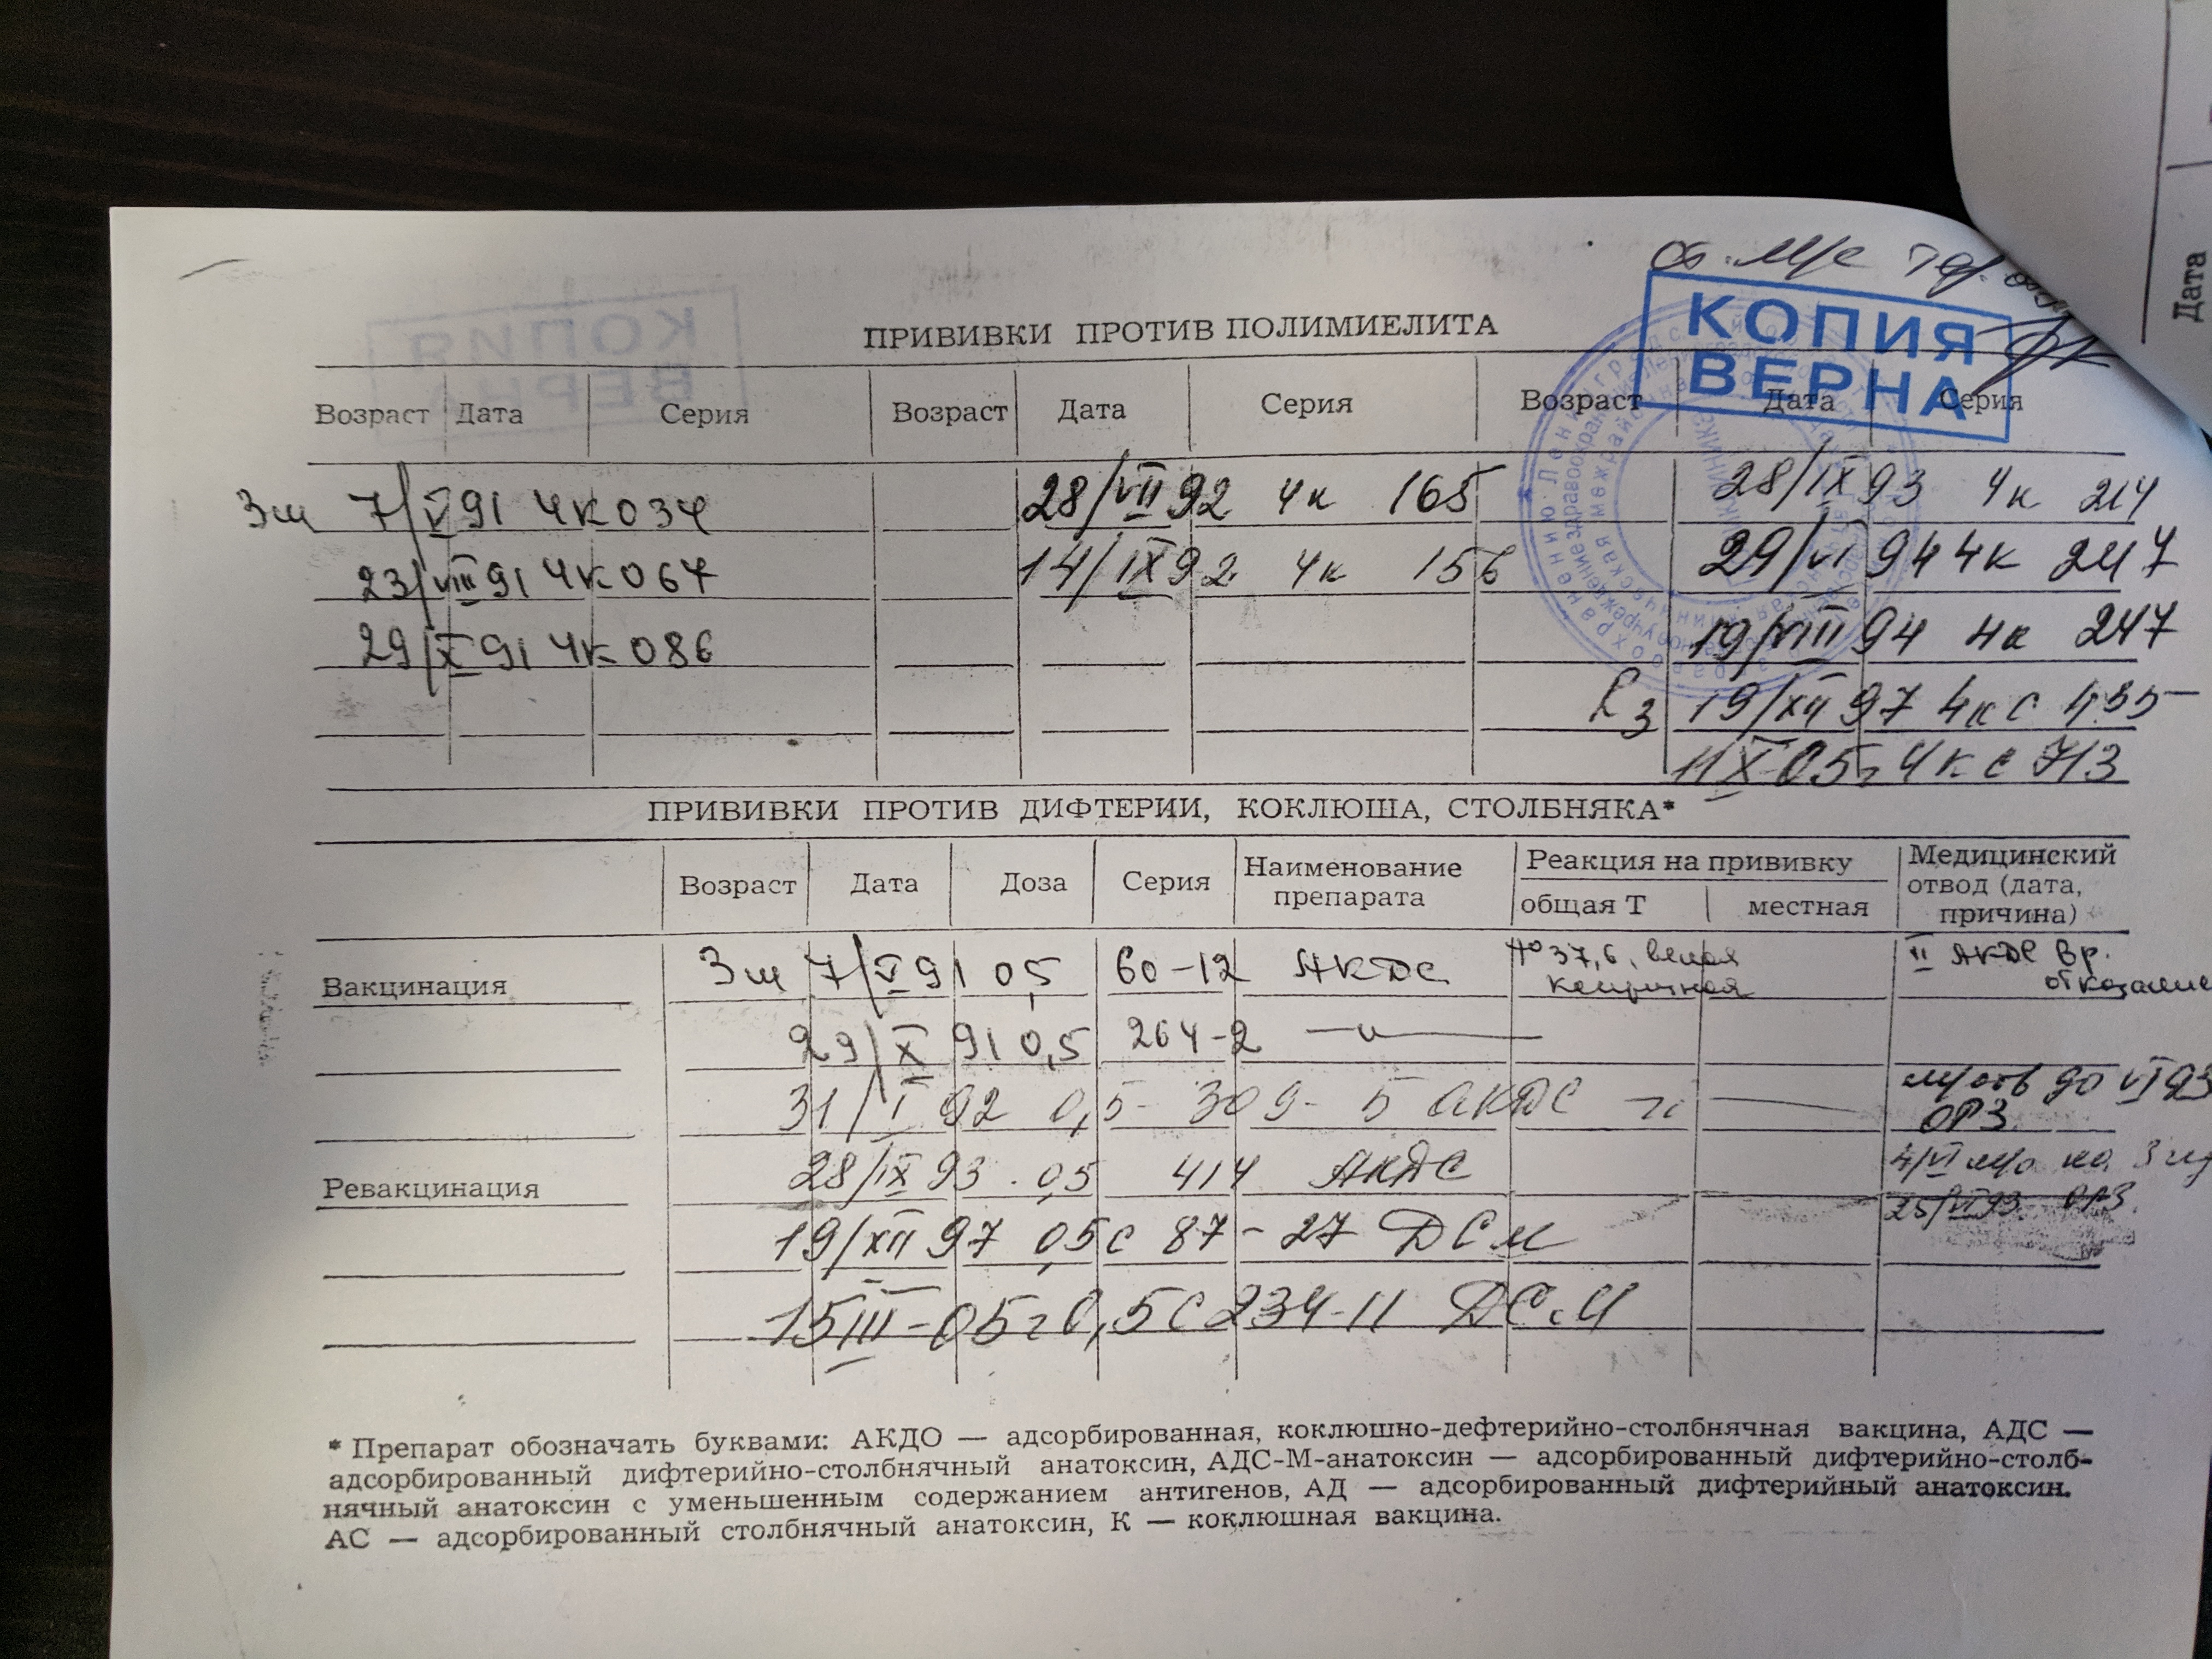 КОПИЯ
ВЕРНА
ПРИВИВКИ ПРОТИВ ПОЛИМИЕЛИТА
Возраст Дата Серия Возраст Дата Серия Возраст Дата Серия
3 м 7/V 91 4К 034 28/VII 92 4к 165 28/IX 93 4к 214
23/VIII 91 4К 067 14/IX 92 4к 156 29/VI 94 4к 247
29/X 91 4К 086 19/VIII 94 4к 247
R3 19/XII 97 4к с 435
11 X-05г 4к с 713
ПРИВИВКИ ПРОТИВ ДИФТЕРИИ, КОКЛЮША, СТОЛБНЯКА*
Возраст Дата Доза Серия Наименование препарата Реакция на прививку Медицинский отвод (дата, причина)
общая Т местная
Вакцинация 3 м 7/V 91 0,5 60-12 АКДС t° 37,6, II АКДС вр.
29/X 91 0,5 264-2 —"—
31/I 92 0,5 309-5 АКДС м/отв до VI 93
ОРЗ
Ревакцинация 28/IX 93 0,5 414 АКДС 4/VI м/о на 3 м
25/VI 93 ОРЗ
19/XII 97 0,5 с 87-27 АДСм
15 III-05г 0,5 с 234-11 АДС.М
* Препарат обозначать буквами: АКДО — адсорбированная, коклюшно-дефтерийно-столбнячная вакцина, АДС —
адсорбированный дифтерийно-столбнячный анатоксин, АДС-М-анатоксин — адсорбированный дифтерийно-столб-
нячный анатоксин с уменьшенным содержанием антигенов, АД — адсорбированный дифтерийный анатоксин.
АС — адсорбированный столбнячный анатоксин, К — коклюшная вакцина.
Дата